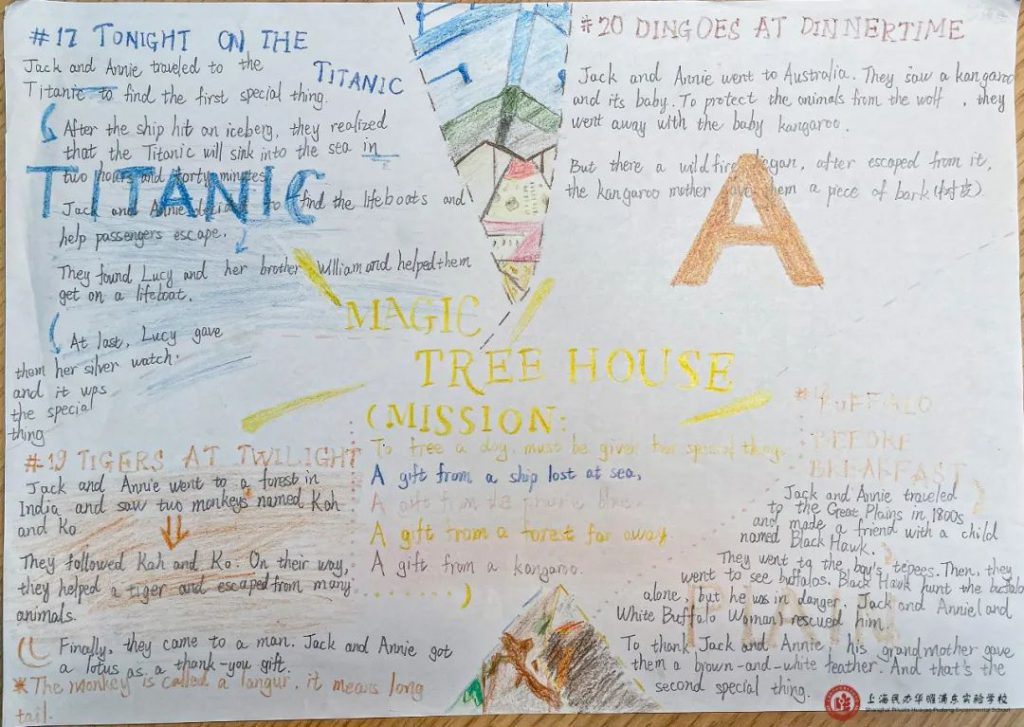 #17 TONIGHT ON THE
TITANIC
Jack and Annie traveled to the
Titanic to find the first special thing.
After the ship hit an iceberg, they realized
that the Titanic will sink into the sea in
two hours and forty minutes
TITANIC
Jack and Annie to find the lifeboats and
help passengers escape.
They found Lucy and her brother William and helped them
get on a lifeboat.
At last, Lucy gave
them her silver watch.
and it was
the special
thing
#20 DINGOES AT DINNERTIME
Jack and Annie went to Australia. They saw a kangaroo
and its baby. To protect the animals from the wolf , they
went away with the baby kangaroo.
But there a wild fire began, after escaped from it,
the kangaroo mother gave them a piece of bark (树皮)
A
MAGIC
TREE HOUSE
(MISSION:
To free a dog, must be given four special thing.
A gift from a ship lost at sea,
A gift from the prairie blue.
A gift from a forest far away.
A gift from a kangaroo.
........)
#19 TIGERS AT TWILIGHT
Jack and Annie went to a forest in
India and saw two monkeys named Kah
and Ko
They followed Kah and Ko. On their way,
they helped a tiger and escaped from many
animals.
Finally, they came to a man. Jack and Annie got
a lotus as a thank-you gift.
*The monkey is called a langur, it means long
tail.
BUFFALO
BEFORE
BREAKFAST
Jack and Annie traveled
to the Great Plains in 1800s
and made a friend with a child
named Black Hawk.
They went to the boy's tepees. Then, they
went to see buffalos. Black Hawk hunt the buffalo
alone, but he was in danger. Jack and Annie(and
White Buffalo Woman) rescued him.
To thank Jack and Annie, his grandmother gave
them a brown-and-white feather. And that's the
second special thing.
上海民办华曜浦东实验学校